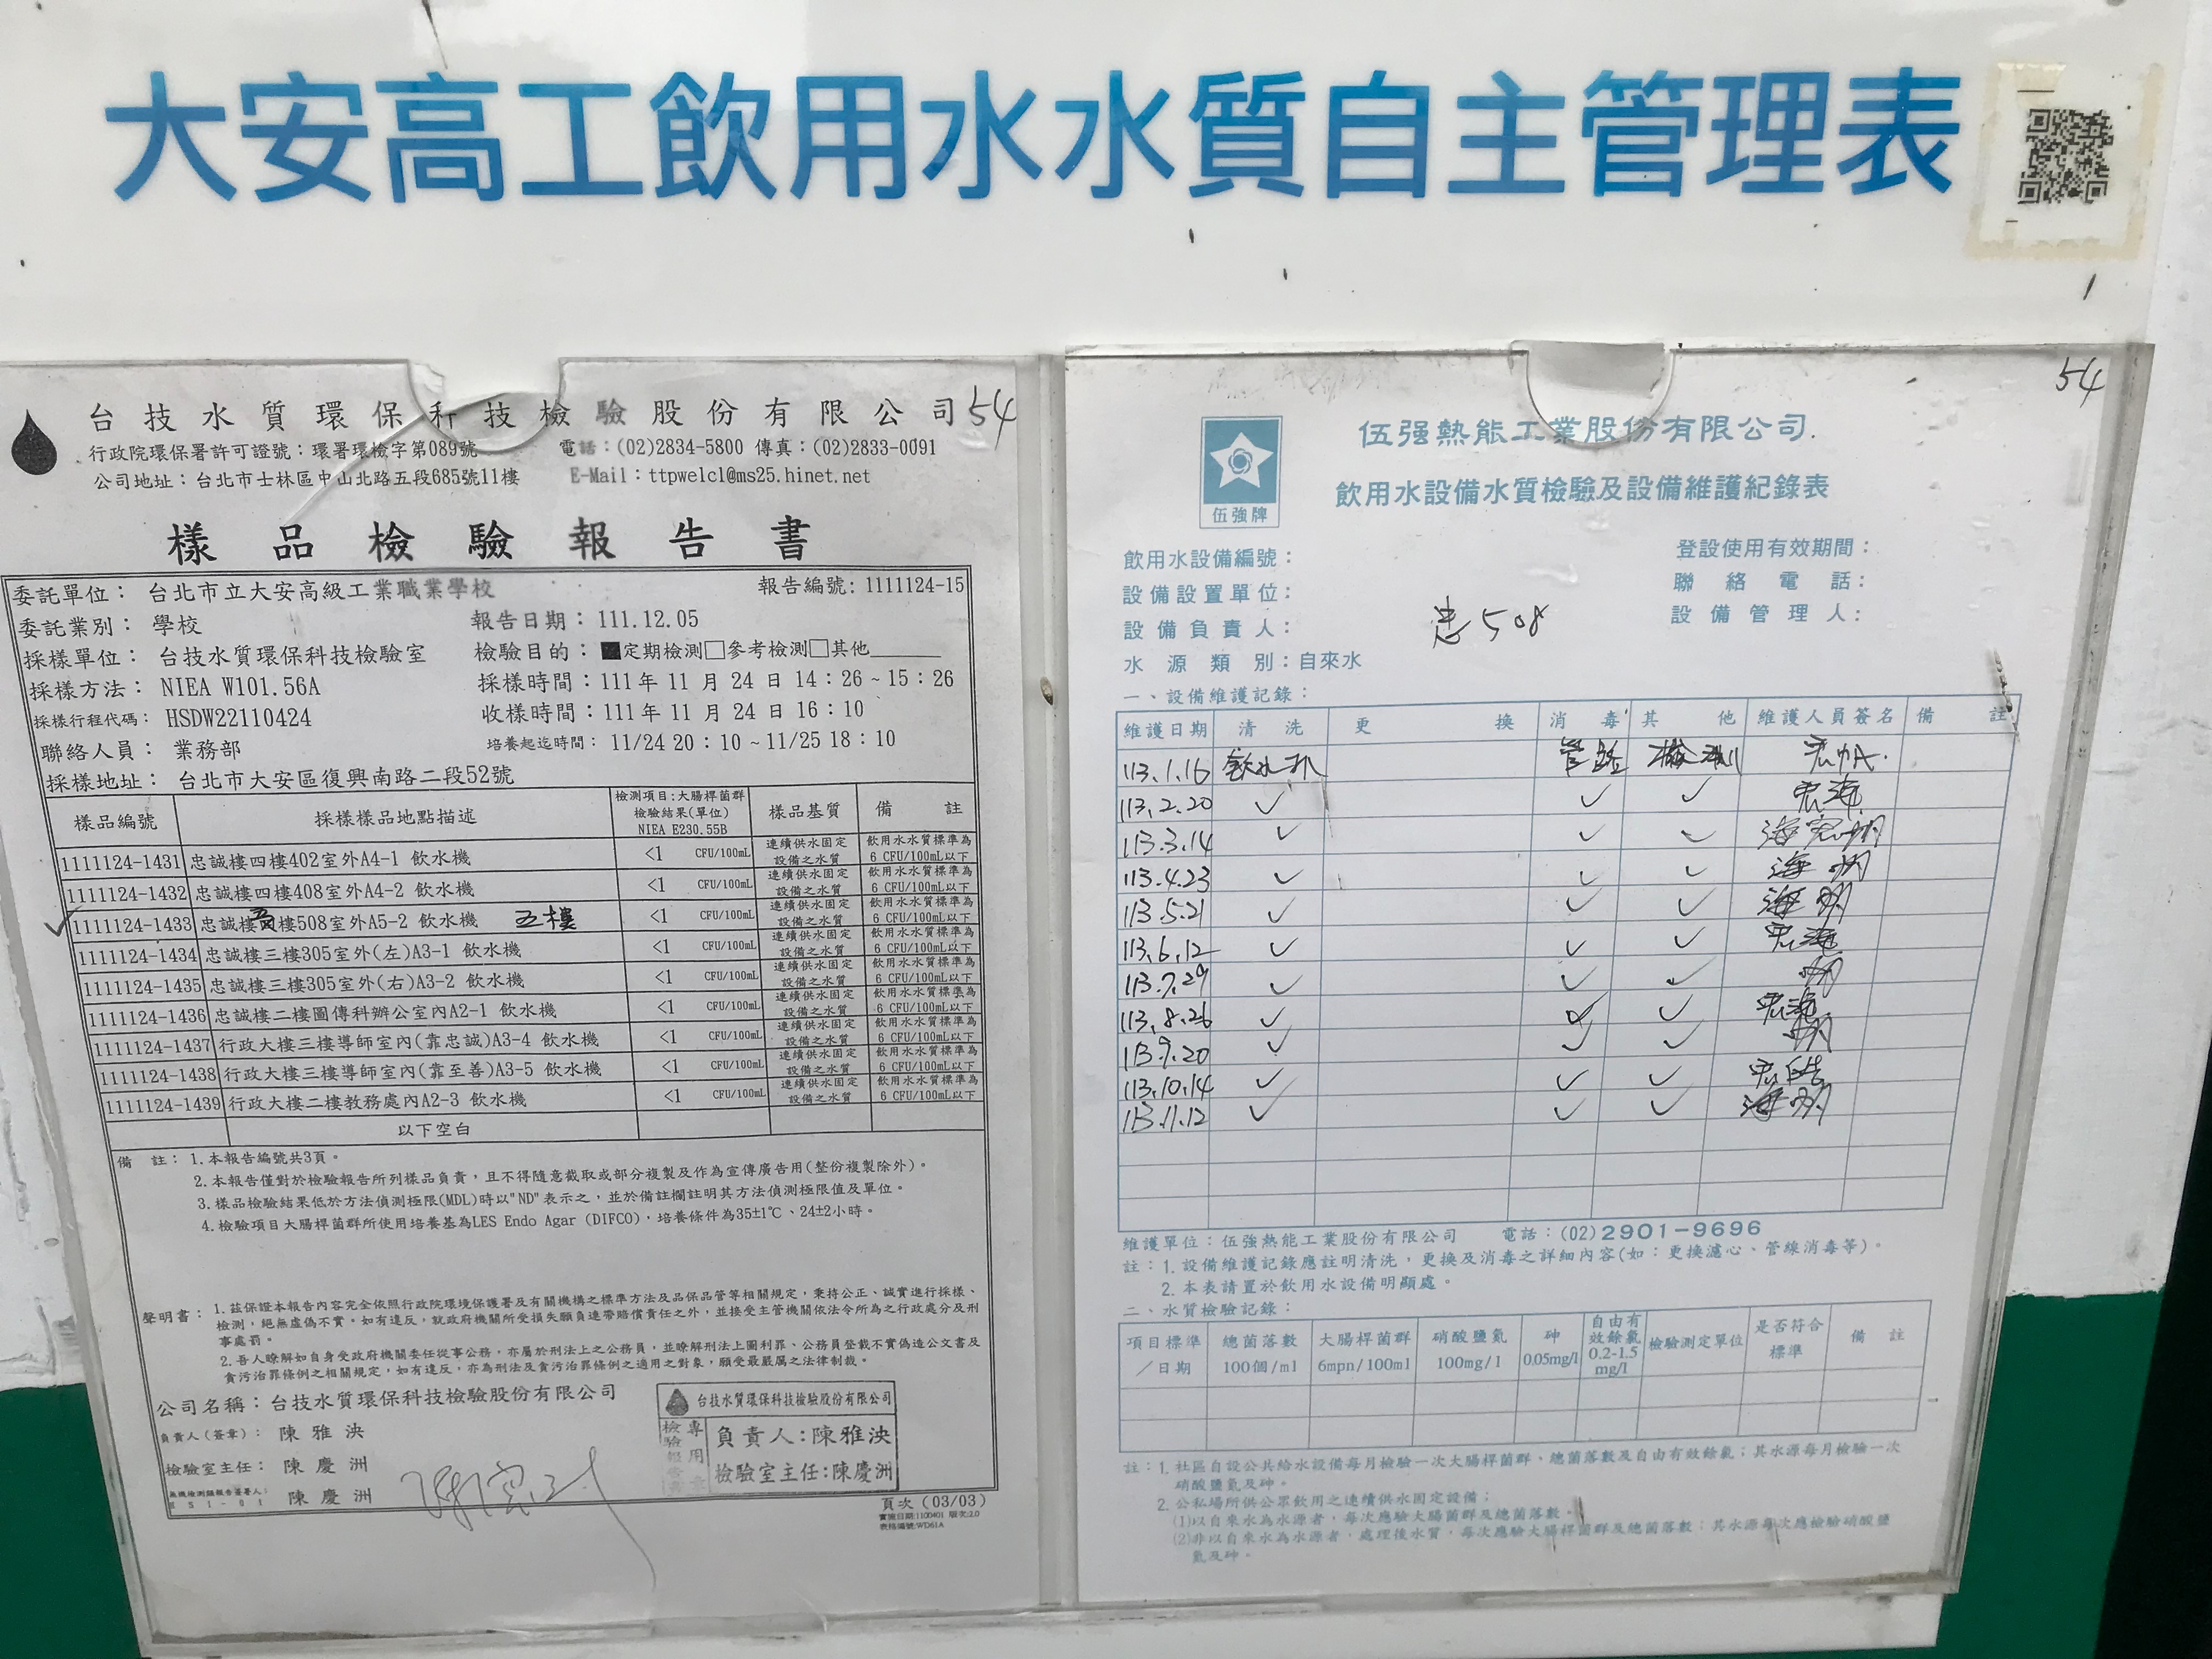 大安高工飲用水水質自主管理表
台技水質環保科技檢驗股份有限公司 54
行政院環保署許可證號：環署環檢字第089號 電話：(02)2834-5800 傳真：(02)2833-0091
公司地址：台北市士林區中山北路五段685號11樓 E-Mail：ttpwelcl@ms25.hinet.net
樣品檢驗報告書
委託單位： 台北市立大安高級工業職業學校 報告編號: 1111124-15
委託業別： 學校 報告日期： 111.12.05
採樣單位： 台技水質環保科技檢驗室 檢驗目的： ■定期檢測□參考檢測□其他
採樣方法： NIEA W101.56A 採樣時間：111年 11 月 24 日 14：26～15：26
採樣行程代碼： HSDW22110424 收樣時間：111年 11 月 24 日 16：10
聯絡人員： 業務部 培養起迄時間： 11/24 20：10～11/25 18：10
採樣地址： 台北市大安區復興南路二段52號
樣品編號 採樣樣品地點描述 檢測項目:大腸桿菌群 檢驗結果(單位) NIEA E230.55B 樣品基質 備註
1111124-1431 忠誠樓四樓402室外A4-1 飲水機 <1 CFU/100mL 連續供水固定設備之水質 飲用水水質標準為6 CFU/100mL以下
1111124-1432 忠誠樓四樓408室外A4-2 飲水機 <1 CFU/100mL 連續供水固定設備之水質 飲用水水質標準為6 CFU/100mL以下
✓ 1111124-1433 忠誠樓五樓508室外A5-2 飲水機 五樓 <1 CFU/100mL 連續供水固定設備之水質 飲用水水質標準為6 CFU/100mL以下
1111124-1434 忠誠樓三樓305室外(左)A3-1 飲水機 <1 CFU/100mL 連續供水固定設備之水質 飲用水水質標準為6 CFU/100mL以下
1111124-1435 忠誠樓三樓305室外(右)A3-2 飲水機 <1 CFU/100mL 連續供水固定設備之水質 飲用水水質標準為6 CFU/100mL以下
1111124-1436 忠誠樓二樓圖傳科辦公室內A2-1 飲水機 <1 CFU/100mL 連續供水固定設備之水質 飲用水水質標準為6 CFU/100mL以下
1111124-1437 行政大樓三樓導師室內(靠忠誠)A3-4 飲水機 <1 CFU/100mL 連續供水固定設備之水質 飲用水水質標準為6 CFU/100mL以下
1111124-1438 行政大樓三樓導師室內(靠至善)A3-5 飲水機 <1 CFU/100mL 連續供水固定設備之水質 飲用水水質標準為6 CFU/100mL以下
1111124-1439 行政大樓二樓教務處內A2-3 飲水機 <1 CFU/100mL 連續供水固定設備之水質 飲用水水質標準為6 CFU/100mL以下
以下空白
備 註：1.本報告編號共3頁。
2.本報告僅對於檢驗報告所列樣品負責，且不得隨意截取或部分複製及作為宣傳廣告用(整份複製除外)。
3.樣品檢驗結果低於方法偵測極限(MDL)時以"ND"表示之，並於備註欄註明其方法偵測極限值及單位。
4.檢驗項目大腸桿菌群所使用培養基為LES Endo Agar (DIFCO)，培養條件為35±1℃、24±2小時。
聲明書：1.茲保證本報告內容完全依照行政院環境保護署及有關機構之標準方法及品保品管等相關規定，秉持公正、誠實進行採樣、
檢測，絕無虛偽不實。如有違反，就政府機關所受損失願負連帶賠償責任之外，並接受主管機關依法令所為之行政處分及刑
事處罰。
2.吾人瞭解如自身受政府機關委任從事公務，亦屬於刑法上之公務員，並瞭解刑法上圖利罪、公務員登載不實偽造公文書及
貪污治罪條例之相關規定，如有違反，亦為刑法及貪污治罪條例之適用之對象，願受最嚴厲之法律制裁。
公司名稱：台技水質環保科技檢驗股份有限公司
負責人(簽章)： 陳雅泱
檢驗室主任： 陳慶洲
無機檢測類報告簽署人： 陳慶洲
台技水質環保科技檢驗股份有限公司
檢驗報告書專用章
負責人:陳雅泱
檢驗室主任:陳慶洲
頁次 (03/03)
實施日期:1100401 版次:2.0
表格編號:WD61A
54
伍強牌
伍强熱能工業股份有限公司.
飲用水設備水質檢驗及設備維護紀錄表
飲用水設備編號： 登設使用有效期間：
設備設置單位： 聯絡電話：
設備負責人： 忠508 設備管理人：
水源類別：自來水
一、設備維護記錄：
維護日期 清洗 更換 消毒 其他 維護人員簽名 備註
113.1.16 飲水机 管路 檢測
113.2.20 ✓ ✓ ✓
113.3.14 ✓ ✓ ✓
113.4.23 ✓ ✓ ✓
113.5.21 ✓ ✓ ✓
113.6.12 ✓ ✓ ✓
113.7.29 ✓ ✓ ✓
113.8.26 ✓ ✓ ✓
113.9.20 ✓ ✓ ✓
113.10.14 ✓ ✓ ✓
113.11.12 ✓ ✓ ✓
維護單位：伍強熱能工業股份有限公司 電話：(02)2901-9696
註：1.設備維護記錄應註明清洗，更換及消毒之詳細內容(如：更換濾心、管線消毒等)。
2.本表請置於飲用水設備明顯處。
二、水質檢驗記錄：
項目標準／日期 總菌落數100個/ml 大腸桿菌群6mpn/100ml 硝酸鹽氮100mg/l 砷0.05mg/l 自由有效餘氯0.2-1.5mg/l 檢驗測定單位 是否符合標準 備註
註：1.社區自設公共給水設備每月檢驗一次大腸桿菌群、總菌落數及自由有效餘氯；其水源每月檢驗一次
硝酸鹽氮及砷。
2.公私場所供公眾飲用之連續供水固定設備；
(1)以自來水為水源者，每次應驗大腸菌群及總菌落數。
(2)非以自來水為水源者，處理後水質，每次應驗大腸桿菌群及總菌落數；其水源每次應檢驗硝酸鹽
氮及砷。